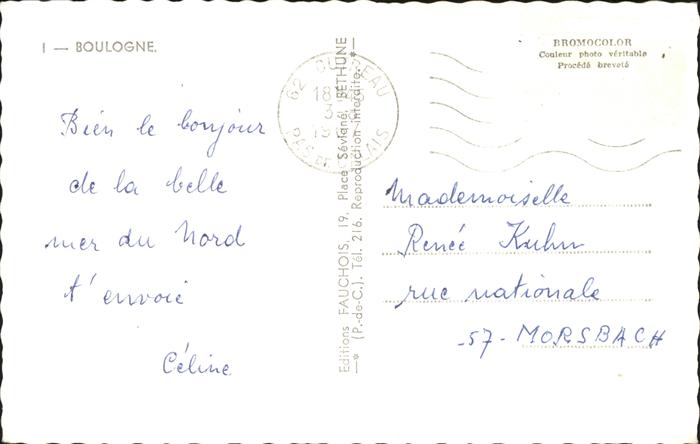 1 — BOULOGNE.
BROMOCOLOR
Couleur photo véritable
Procédé breveté
62
18
PAS DE CALAIS
Bien le bonjour
de la belle
mer du Nord
t'envoie
Céline
Editions FAUCHOIS, 19, Place Sévigné, BÉTHUNE
—* (P.-de-C.). Tél. 216. Reproduction interdite. *—
Mademoiselle
Renée Kuhn
rue nationale
57- MORSBACH